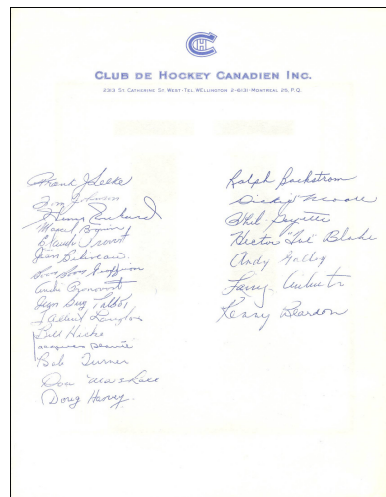 CLUB DE HOCKEY CANADIEN INC.
2313 ST. CATHERINE ST. WEST - TEL. WELLINGTON 2-6131 - MONTREAL 25, P.Q.
Frank J Selke
Tom Johnson
Henri Richard
Marcel Bonin
Claude Provost
Jean Beliveau
Boom Boom Geoffrion
André Pronovost
Jean Guy Talbot
Albert Langlois
Bill Hicke
Jacques Plante
Bob Turner
Don Marshall
Doug Harvey
Ralph Backstrom
Dickie Moore
Phil Goyette
Hector "Toe" Blake
Andy
Larry
Kenny Reardon